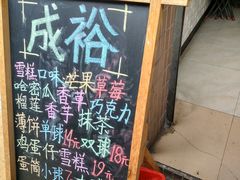 成裕
雪糕口味 芒果 草莓
哈密瓜 香草 巧克力
榴莲 香芋 抹茶
薄饼 单球14元 双球18元
鸡蛋仔 雪糕 19元
蛋筒 小球